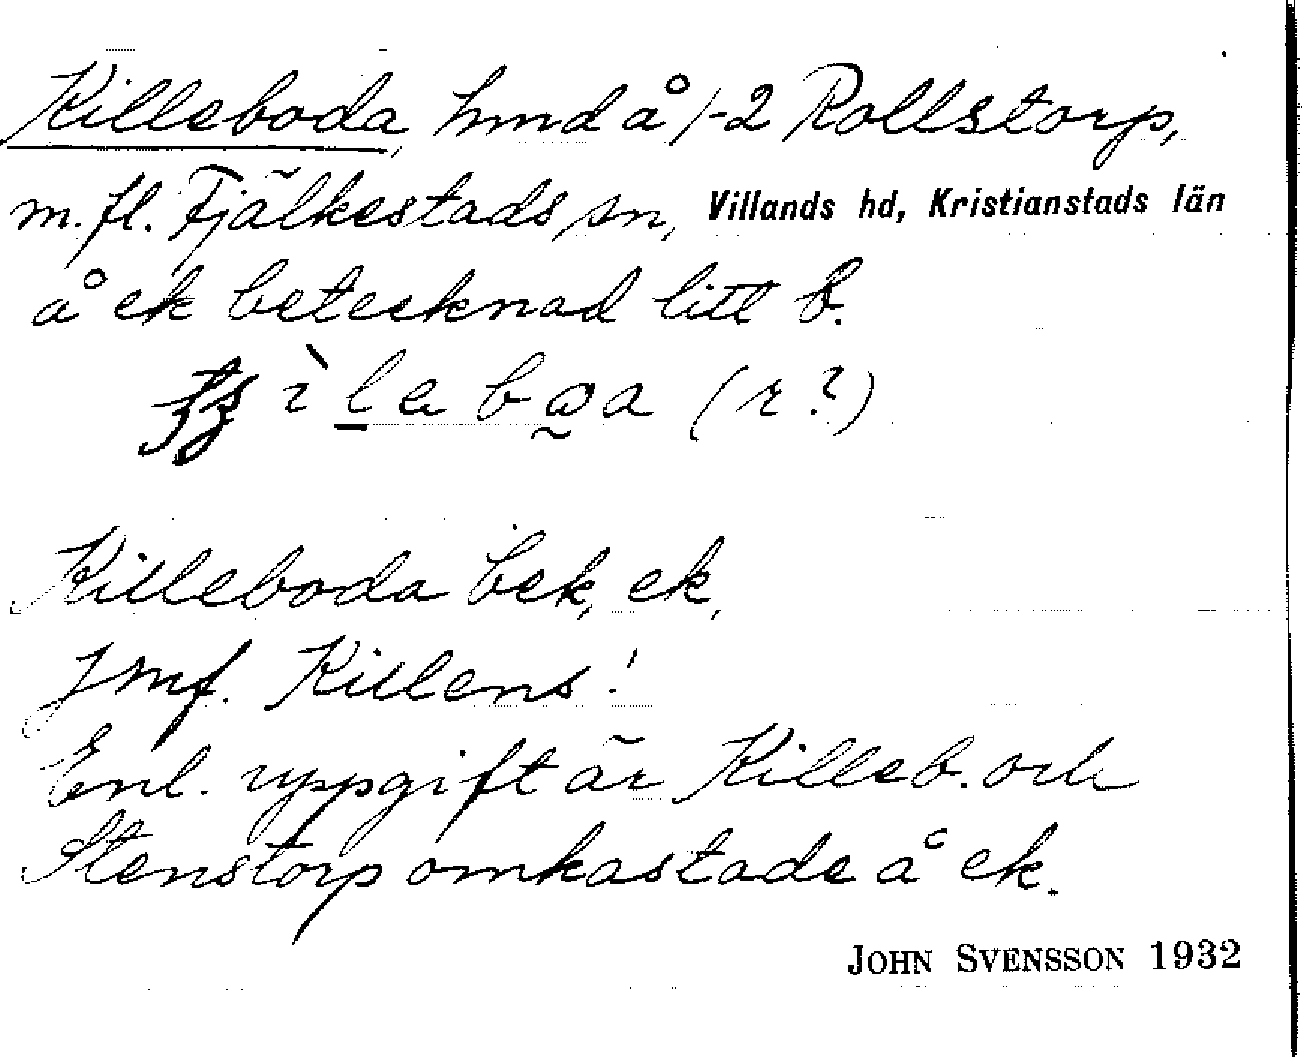 Killeboda, hmd å 1-2 Rollstorp,
m.fl. Fjälkestads sn, Villands hd, Kristianstads län
å ek betecknad litt B.
ìlebơa (r?)
Killeboda bek, ek,
Jmf. Killens!
Enl. uppgift är Killeb. och
Stenstorp omkastade å ek.
JOHN SVENSSON 1932